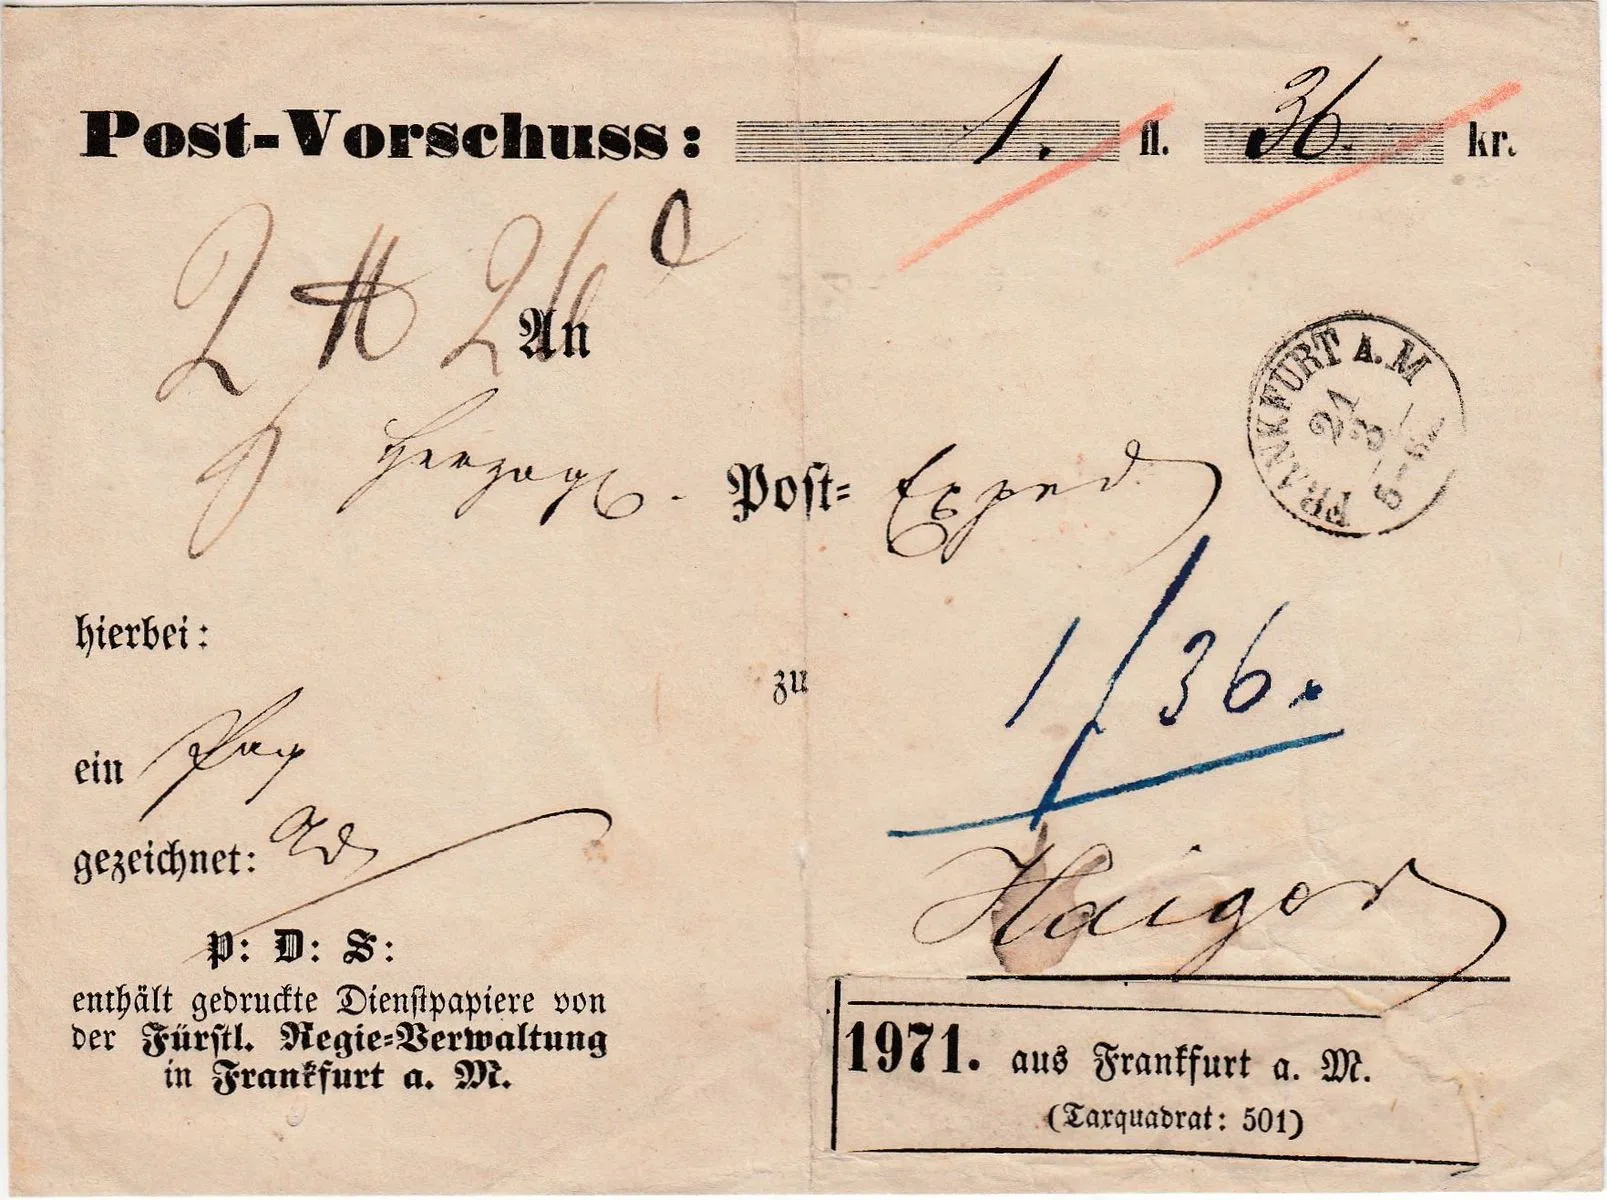 Post-Vorschuss: 1. fl. 36. kr.
2 ℔ 26
An
Herzogl. Post= Exped
FRANKFURT A.M
21
3
hierbei:
zu
1/36.
ein Paq
gezeichnet:
Haiger
P: D: S:
enthält gedruckte Dienstpapiere von
der Fürstl. Regie=Verwaltung
in Frankfurt a. M.
1971. aus Frankfurt a. M.
(Taxquadrat: 501)